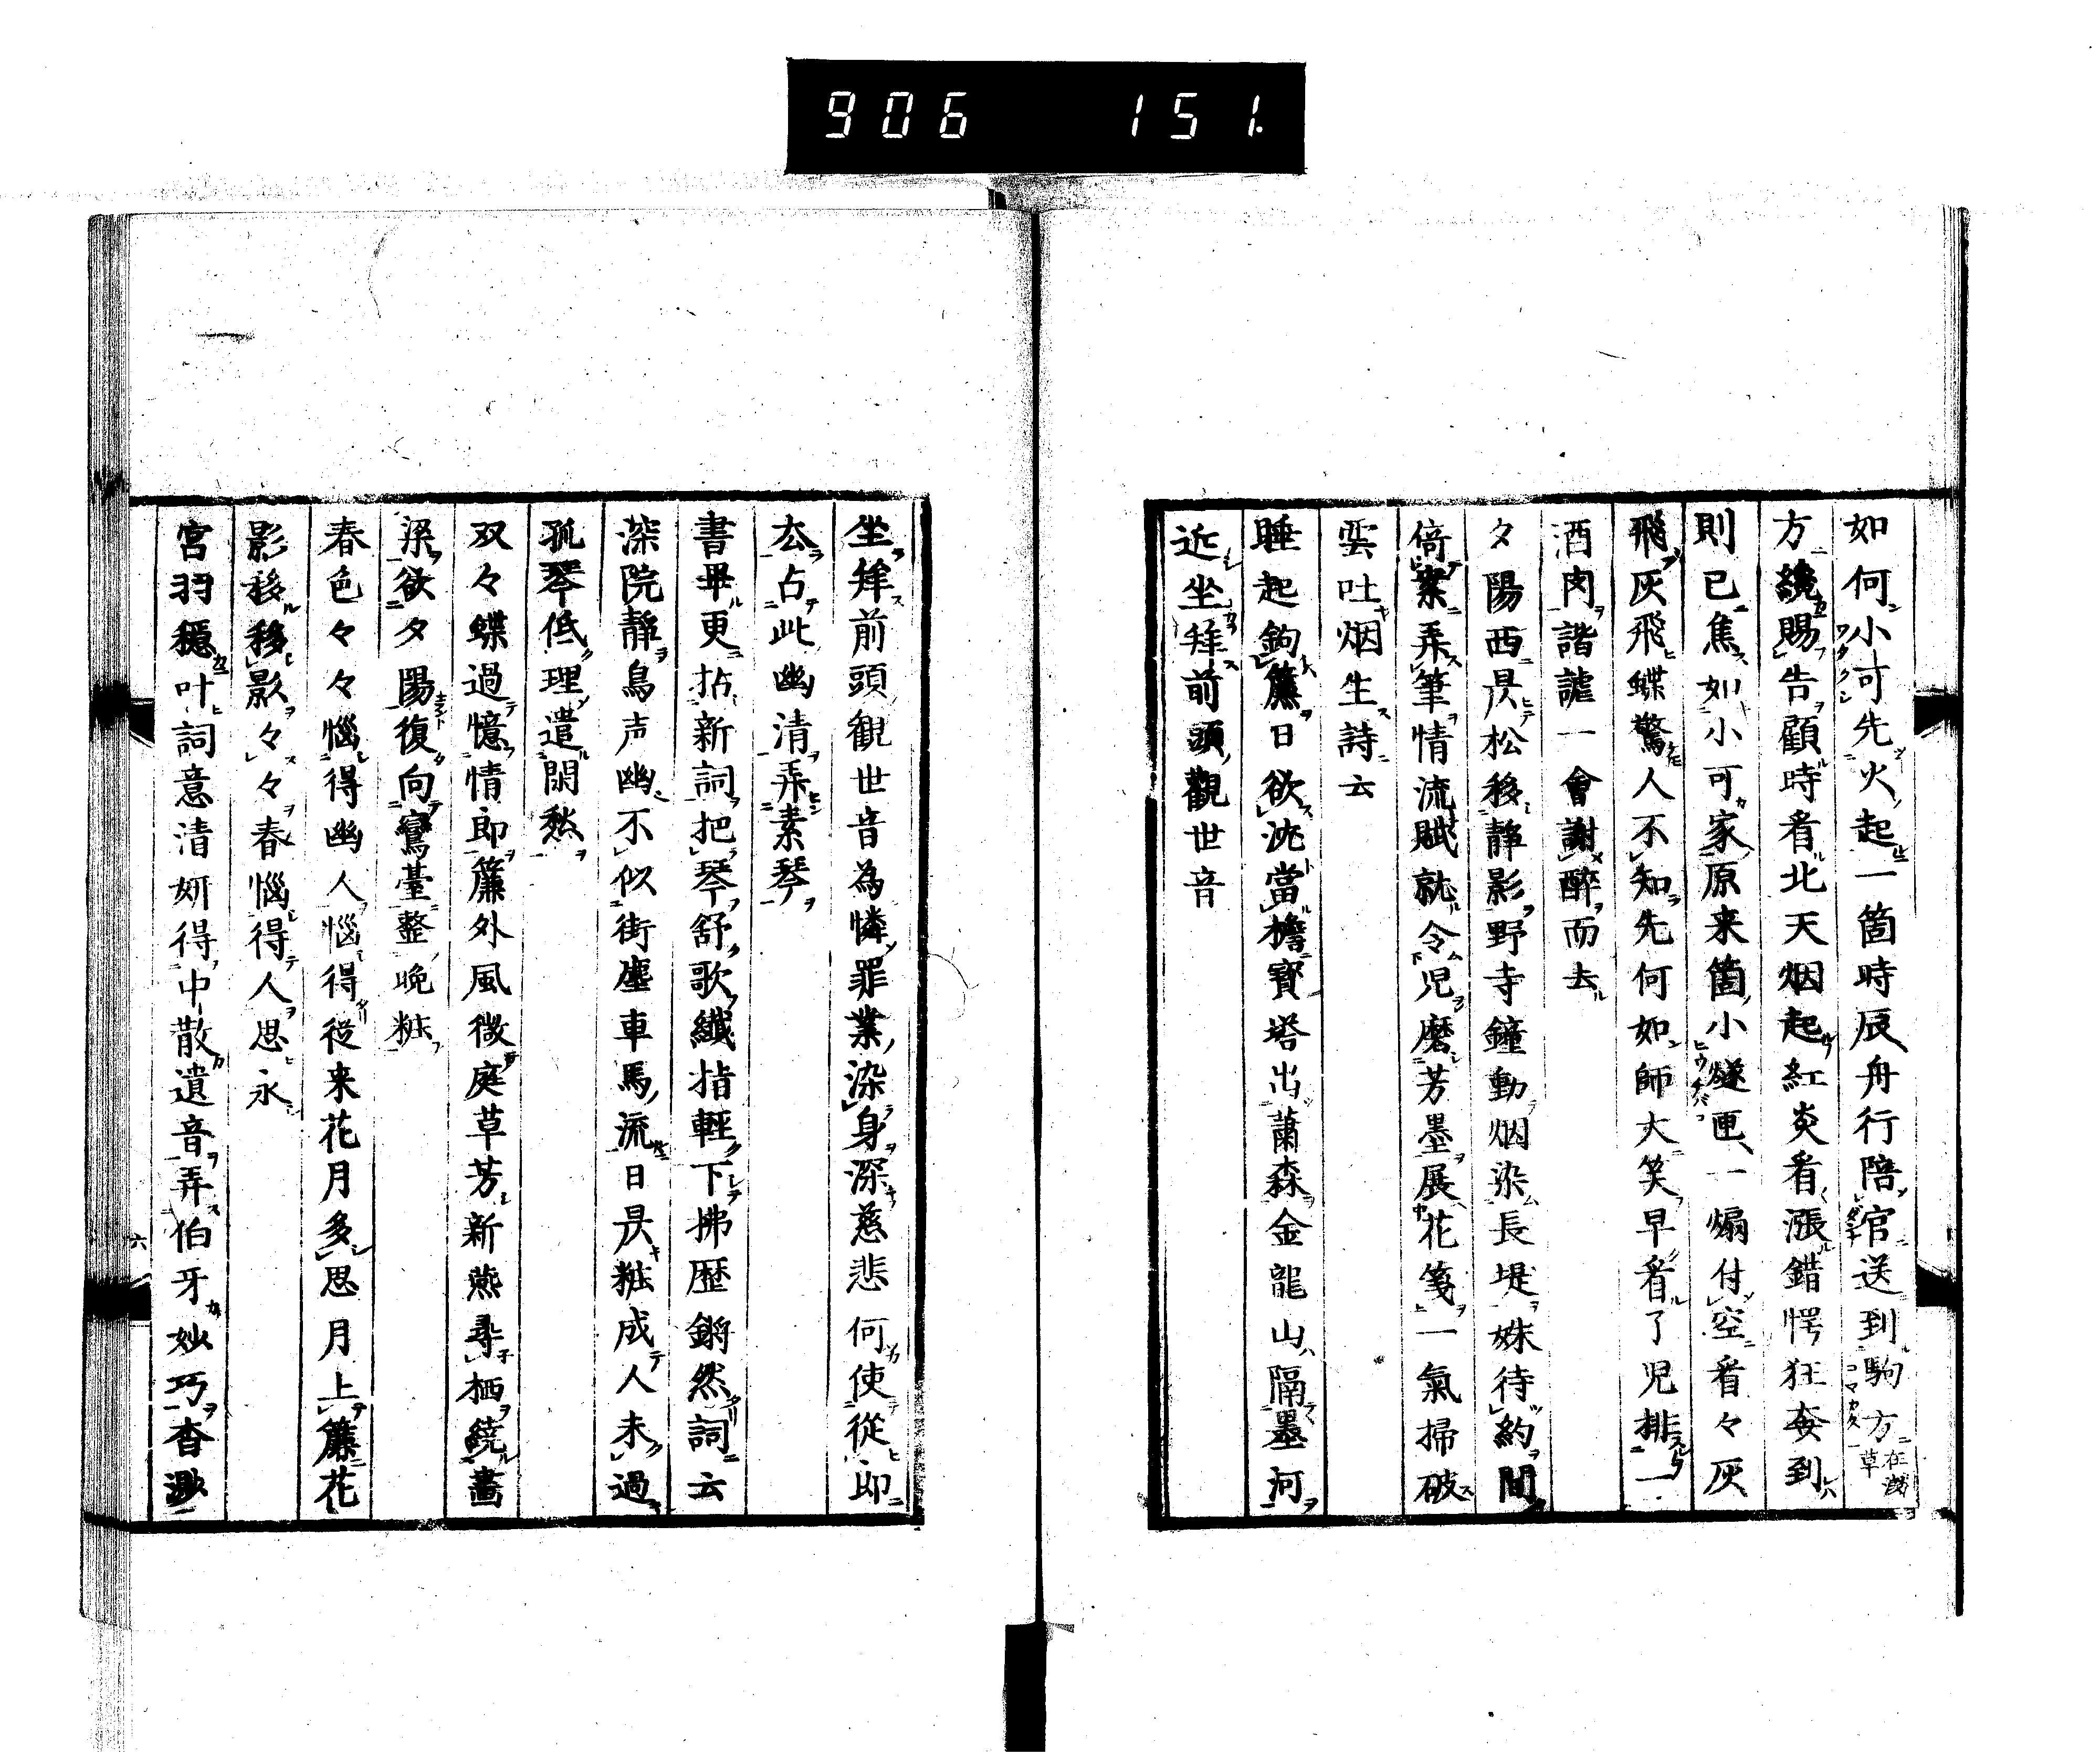 906 151.
如何小可先火起一箇時辰舟行陪官送到駒方在淺草
方纔賜告顧時看北天烟起紅炎看漲錯愕狂奔到
則已焦如小可家原来箇小燧匣一煽付空看々灰
飛灰飛蝶驚人不知先何如師大笑早看了児排一
酒肉諧謔一會謝醉而去
夕陽西昃松移静影野寺鐘動烟染長堤姝待約間
倚案弄筆情流賦就令児磨芳墨展花箋一氣掃破
雲吐烟生詩云
睡起鉤簾日欲沈當檐寶塔出蕭森金龍山隔墨河
近坐拜前頭觀世音
坐拜前頭観世音為憐罪業染身深慈悲何使從即
去占此幽清弄素琴
書畢更拈新詞把琴舒歌纖指輕下拂歴鏘然詞云
深院靜鳥声幽不似街塵車馬流日昃粧成人未過
孤琴低理遣閑愁
双々蝶過憶情郎簾外風微庭草芳新燕尋栖繞畵
梁欲夕陽復向鸞臺整晩粧
春色々々惱得幽人惱得從来花月多思月上簾花
影移移影々々春惱得人思永
宮羽穏叶詞意清妍得中散遺音弄伯牙妙巧杳渺
六